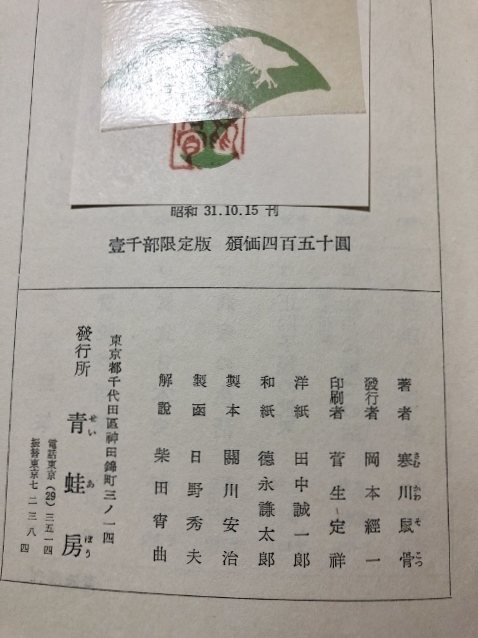 昭和 31.10.15 刊
壹千部限定版 頒価四百五十圓
著者 寒川鼠骨
さむかわそこつ
發行者 岡本經一
印刷者 菅生定祥
洋紙 田中誠一郎
和紙 德永謙太郎
製本 關川安治
製函 日野秀夫
解説 柴田宵曲
東京都千代田區神田錦町三ノ一四
發行所 青蛙房
せいあぼう
電話東京(29)三五一四
振替東京七二三八四